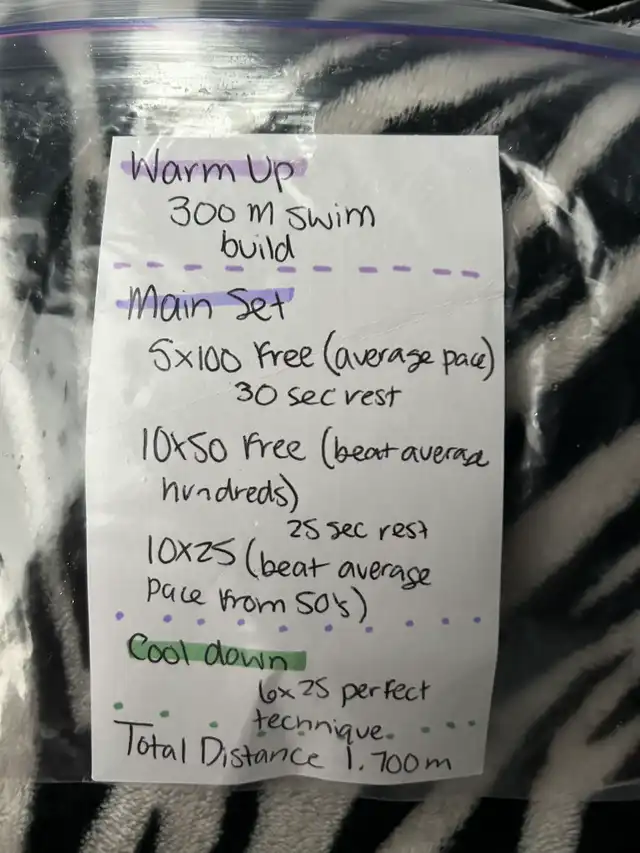 Warm Up
300 m swim
build
Main Set
5x100 Free (average pace)
30 sec rest
10x50 Free (beat average
hundreds)
25 sec rest
10x25 (beat average
pace from 50's)
Cool down
6x25 perfect
technique.
Total Distance 1.700m